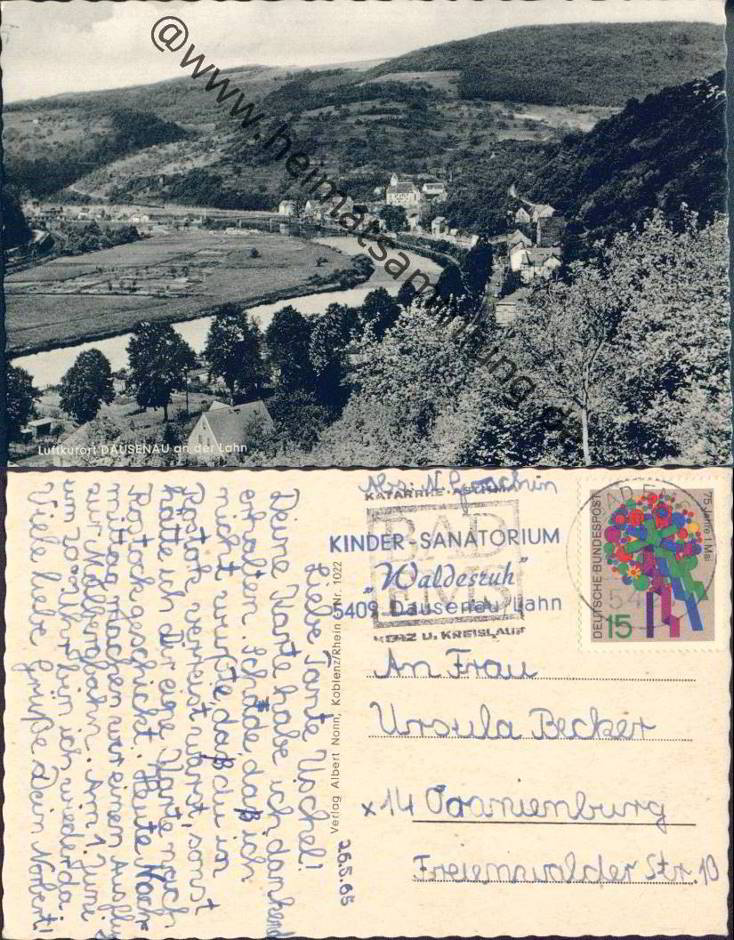 @www.heimatsammlung.de
Luftkurort DAUSENAU an der Lahn
KATARRHE · ASTHMA
BAD
EMS
HERZ U. KREISLAUF
KINDER-SANATORIUM
"Waldesruh"
5409 Dausenau/Lahn
BAD E
54
DEUTSCHE BUNDESPOST
75 Jahre 1. Mai
15
An Frau
Ursula Becker
x 14 Oranienburg
Freienwalder Str. 10
Verlag Albert Nonn, Koblenz/Rhein Nr. 1022
26.5.65
Liebe Tante Uschel!
Deine Karte habe ich dankend
erhalten. Schade, daß ich
nicht wußte, daß du in
Rostok verreist warst, sonst
hätte ich Dir eine Karte nach
Rostock geschickt. Heute Nach-
mittag machen wir einen Ausflug
zur Malbergbahn. Am 1. Juni
um 20 Uhr bin ich wieder da
Viele liebe Grüße Dein Norbert!